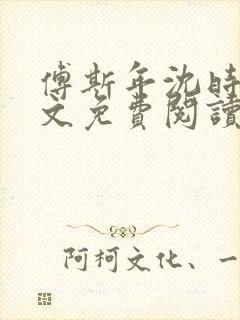 傅斯年沈時
文免費閱讀
阿柯文化、一